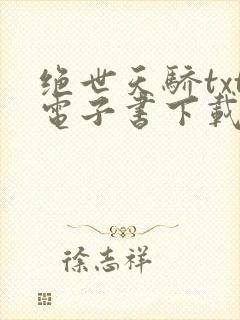 绝世天骄txt
電子書下載
徐志祥